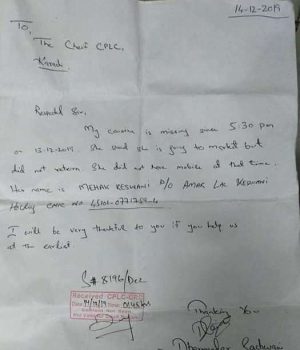 14-12-2019
To,
The Chief CPLC,
Karachi.
Respected Sir,
My cousine is missing since 5:30 pm
on 13-12-2019. She said she is going to market but
did not return. She did not have mobile at that time.
Her name is MEHAK KESWANI D/O AMAR LAL KESWANI
Holding CNIC NO
I will be very thankful to you if you help us
at the earliest.
S# 8196/Dec
Received CPLC-CRC
Date 14/12/19
Thanking You